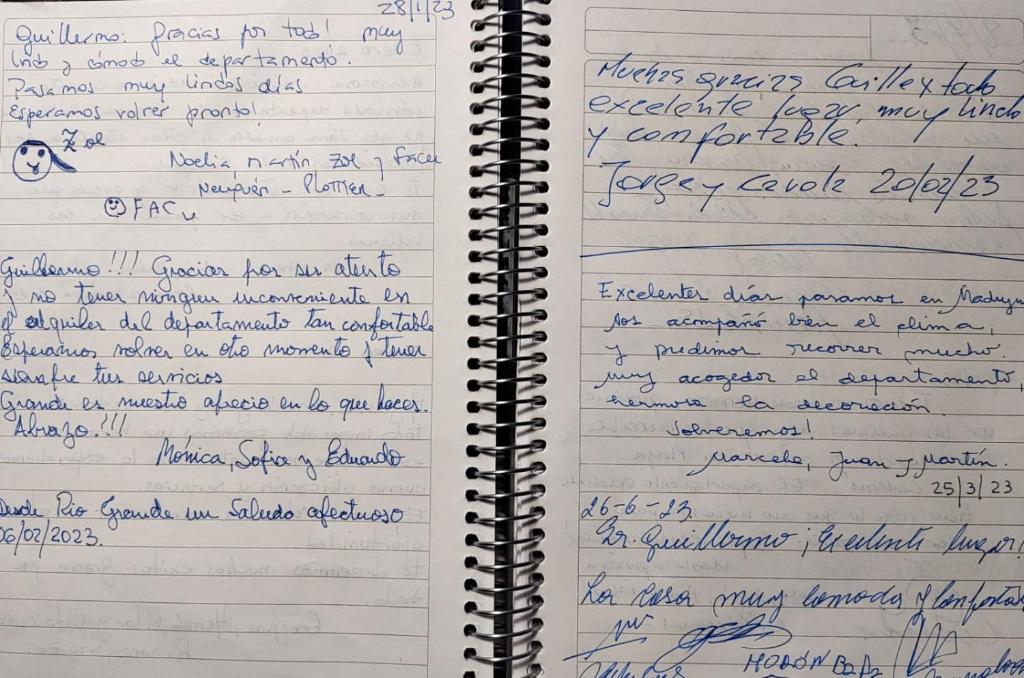 28/1/23
Guillermo: Gracias por todo! muy
lindo y cómodo el departamento.
Pasamos muy lindos días
Esperamos volver pronto!
Zoe
Noelia Martín Zoe y Facu
Neuquén - Plottier
FACU
Guillermo!!! Gracias por ser atento
y no tener ningun inconveniente en
el alquiler del departamento tan confortable
Esperamos volver en otro momento y tener
siempre tus servicios
Grande es nuestro aprecio en lo que haces.
Abrazo.!!!
Mónica, Sofia y Eduardo
Desde Rio Grande un Saludo afectuoso
06/02/2023.
Muchas gracias Guille x todo
excelente lugar, muy lindo
y comfortable.
Jorge y Carola 20/02/23
Excelentes días pasamos en Madryn
nos acompañó bien el clima,
y pudimos recorrer mucho.
Muy acogedor el departamento,
hermosa la decoración.
Volveremos!
Marcela, Juan y Martín.
25/3/23
26-6-23
Sr. Guillermo ¡Excelente lugar!
La casa muy comoda y